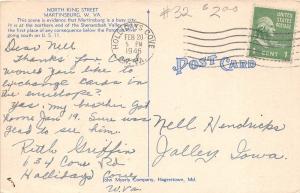 NORTH KING STREET
MARTINSBURG, W. VA.
This scene is evidence that Martinsburg is a busy city.
It is at the northern end of the Shenandoah Valley and the
first place of any consequence below the Potomac River
going south on U. S. 11.
#32 $2.00
HOLLIDAYS COVE
FEB 20
5 PM
1946
W. VA.
UNITED STATES POSTAGE
1 CENT 1
POST CARD
Dear Nell
Thanks for card
would you like to
exchange cards in
the envelope?
Yes, my brother got
home Jan 19. Sure was
glad to see him.
Ruth Griffin
634 Cove Rd
Hollidays Cove
W Va
Nell Hendricks
Jolley, Iowa.
John Myerly Company, Hagerstown, Md.